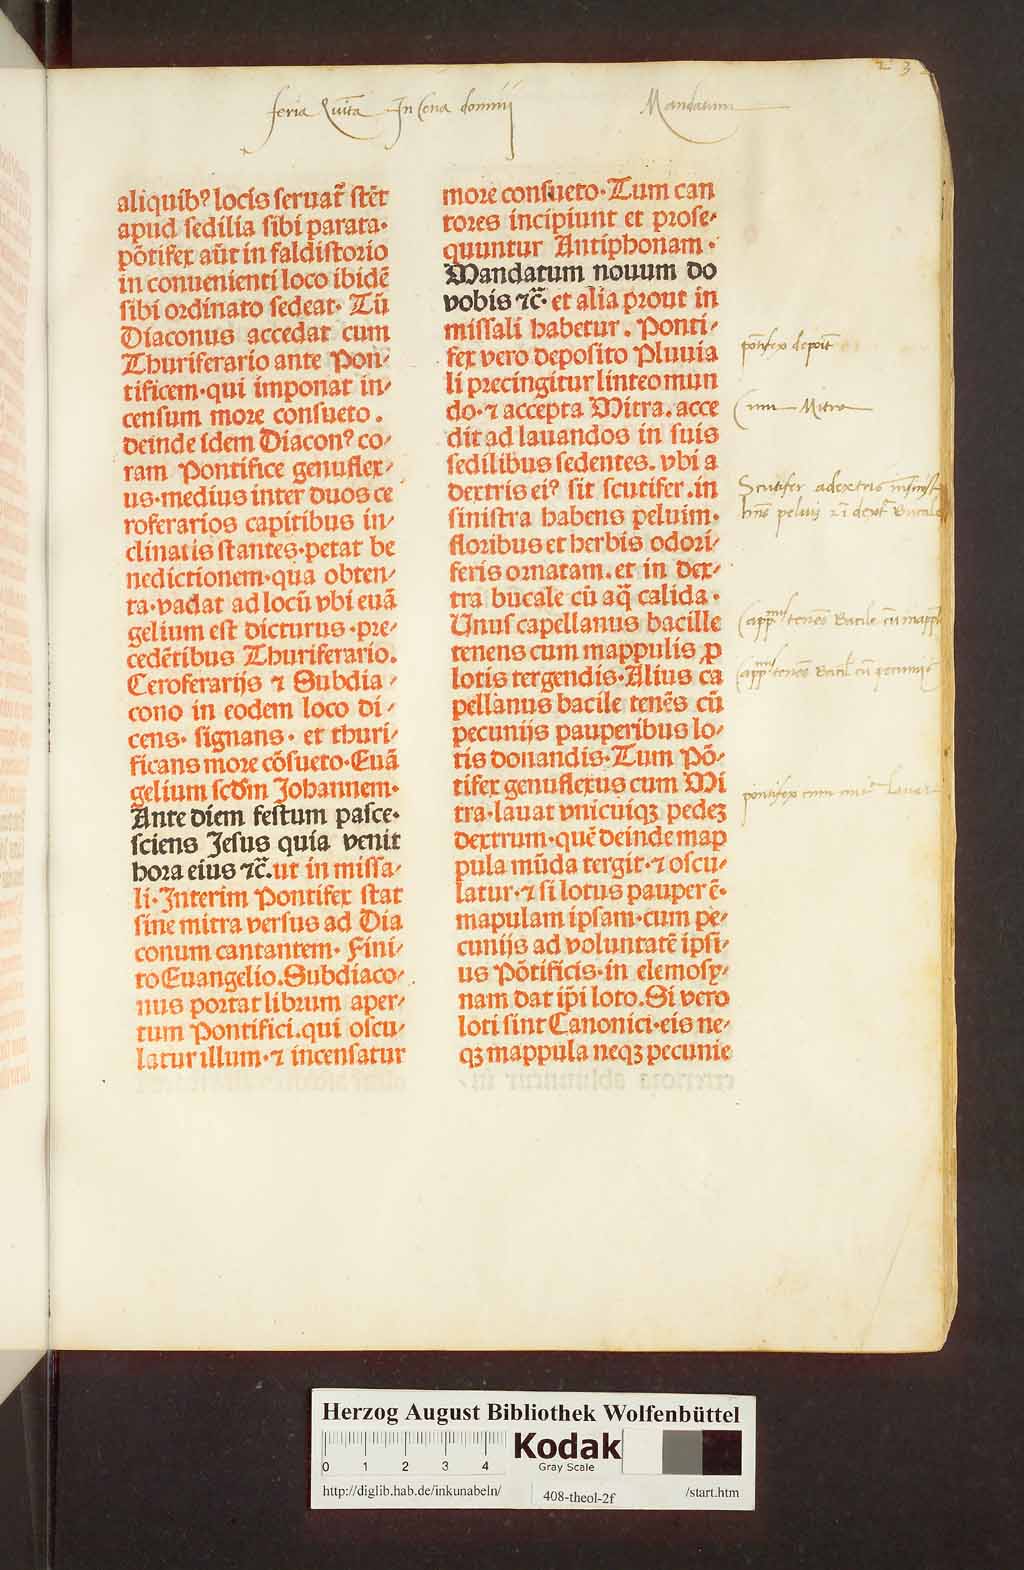 23
feria Quīta In Cena domini
Mandatum
aliquibꝰ locis seruat̄ stēt
apud sedilia sibi parata·
pōtifex aūt in faldistorio
in conuenienti loco ibidē
sibi ordinato sedeat· Tū
Diaconus accedat cum
Thuriferario ante Pon⸗
tificem·qui imponat in⸗
censum more consueto.
deinde idem Diaconꝰ co⸗
ram Pontifice genuflex⸗
us·medius inter duos ce
roferarios capitibus in⸗
clinatis stantes·petat be
nedictionem·qua obten⸗
ta·vadat ad locū vbi euā
gelium est dicturus·pre⸗
cedētibus Thuriferario.
Ceroferarijs ⁊ Subdia⸗
cono in eodem loco di⸗
cens· signans· et thuri⸗
ficans more cōsueto·Euā
gelium scd̄m Johannem·
Ante diem festum pasce·
sciens Jesus quia venit
hora eius ⁊c̄.ut in missa⸗
li·Interim Pontifex stat
sine mitra versus ad Dia
conum cantantem· Fini⸗
to Euangelio.Subdiaco⸗
nus portat librum aper⸗
tum Pontifici.qui oscu⸗
latur illum·⁊ incensatur
more consueto·Tum can
tores incipiunt et prose⸗
quuntur Antiphonam·
Mandatum nouum do
vobis ⁊c̄· et alia prout in
missali habetur. Ponti⸗
fex vero deposito Pluuia
li precingitur linteo mun
do·⁊ accepta Mitra.acce
dit ad lauandos in suis
sedilibus sedentes.vbi a
dextris eiꝰ sit scutifer.in
sinistra habens peluim·
floribus et herbis odori⸗
feris ornatam.et in dex⸗
tra bucale cū aq̄ calida·
Unus capellanus bacille
tenens cum mappulis ꝓ
lotis tergendis·Alius ca
pellanus bacile tenēs cū
pecunijs pauperibus lo⸗
tis donandis·Tum Pō⸗
tifex genuflexus cum Mi
tra·lauat vnicuiqꝫ pedeꝫ
dextrum·quē deinde map
pula mūda tergit·⁊ oscu⸗
latur·⁊ si lotus pauper ē·
mapulam ipsam·cum pe⸗
cunijs ad voluntatē ipsi⸗
us Pōtificis·in elemosy⸗
nam dat ip̄i loto.Si vero
loti sint Canonici·eis ne⸗
qꝫ mappula neqꝫ pecunie
pōtifex depoīt
Cum Mitra
Scutifer adextris
Capp tenēs Bacile cū mapp
Capp tenēs Bacil cū pecunijs
pōntifex cum mit Lauat
Herzog August Bibliothek Wolfenbüttel
0 1 2 3 4
Kodak
Gray Scale
http://diglib.hab.de/inkunabeln/
408-theol-2f
/start.htm